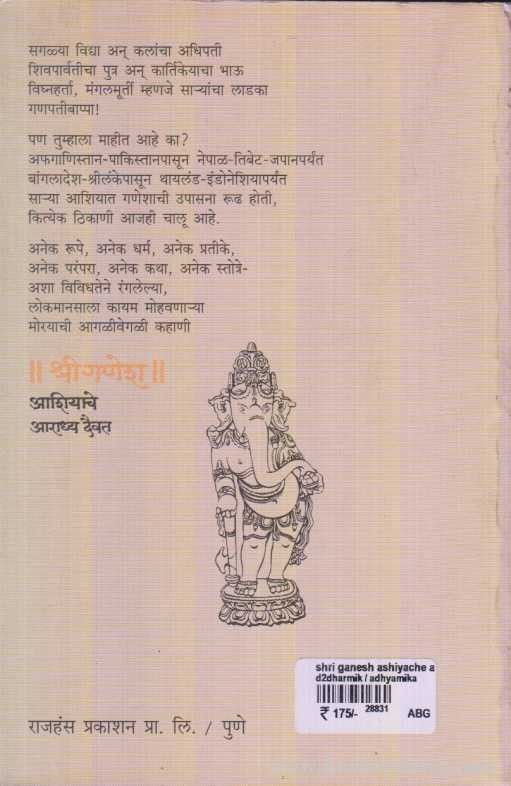 सगळ्या विद्या अन् कलांचा अधिपती
शिवपार्वतीचा पुत्र अन् कार्तिकेयाचा भाऊ
विघ्नहर्ता, मंगलमूर्ती म्हणजे साऱ्यांचा लाडका
गणपतीबाप्पा!
पण तुम्हाला माहीत आहे का?
अफगाणिस्तान-पाकिस्तानपासून नेपाळ-तिबेट-जपानपर्यंत
बांगलादेश-श्रीलंकेपासून थायलंड-इंडोनेशियापर्यंत
साऱ्या आशियात गणेशाची उपासना रूढ होती,
कित्येक ठिकाणी आजही चालू आहे.
अनेक रूपे, अनेक धर्म, अनेक प्रतीके,
अनेक परंपरा, अनेक कथा, अनेक स्तोत्रे-
अशा विविधतेने रंगलेल्या,
लोकमानसाला कायम मोहवणाऱ्या
मोरयाची आगळीवेगळी कहाणी
॥ श्रीगणेश ॥
आशियाचे
आराध्य दैवत
shri ganesh ashiyache a
d2dharmik / adhyamika
₹ 175/- 28831 ABG
राजहंस प्रकाशन प्रा. लि. / पुणे